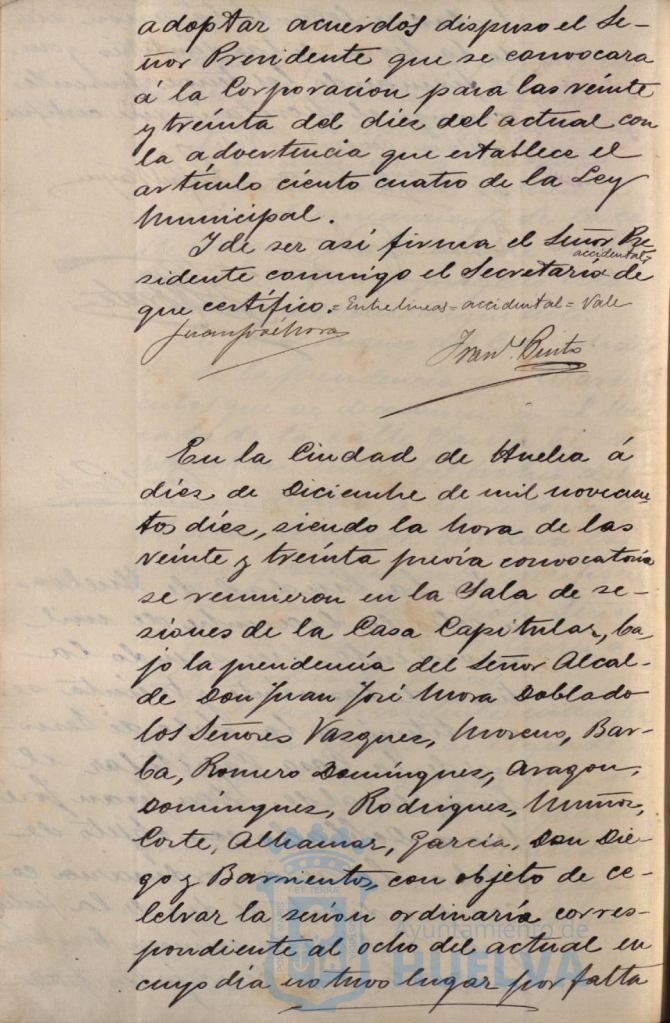 adoptar acuerdos dispuso el Se-
ñor Presidente que se convocara
á la Corporación para las veinte
y treinta del diez del actual con
la advertencia que establece el
artículo ciento cuatro de la Ley
Municipal.
I de ser así firma el Señor Pre
accidental,
sidente conmigo el Secretario de
que certifico. = Entrelineas = accidental = Vale
Juan José Mora
Franco. Pinto
En la Ciudad de Huelva á
diez de Diciembre de mil novecien-
tos diez, siendo la hora de las
veinte y treinta previa convocatoria
se reunieron en la Sala de se-
siones de la Casa Capitular, ba-
jo la presidencia del Señor Alcal-
de Don Juan José Mora Doblado
los Señores Vazquez, Moreno, Bar-
ba, Romero Dominguez, Aragon,
Dominguez, Rodriguez, Muñoz,
Corte, Alhamar, Garcia, Don Die-
go y Barrientos, con objeto de ce-
lebrar la sesión ordinaria corres-
pondiente al ocho del actual en
cuyo día no tuvo lugar por falta
Ayuntamiento de
HUELVA